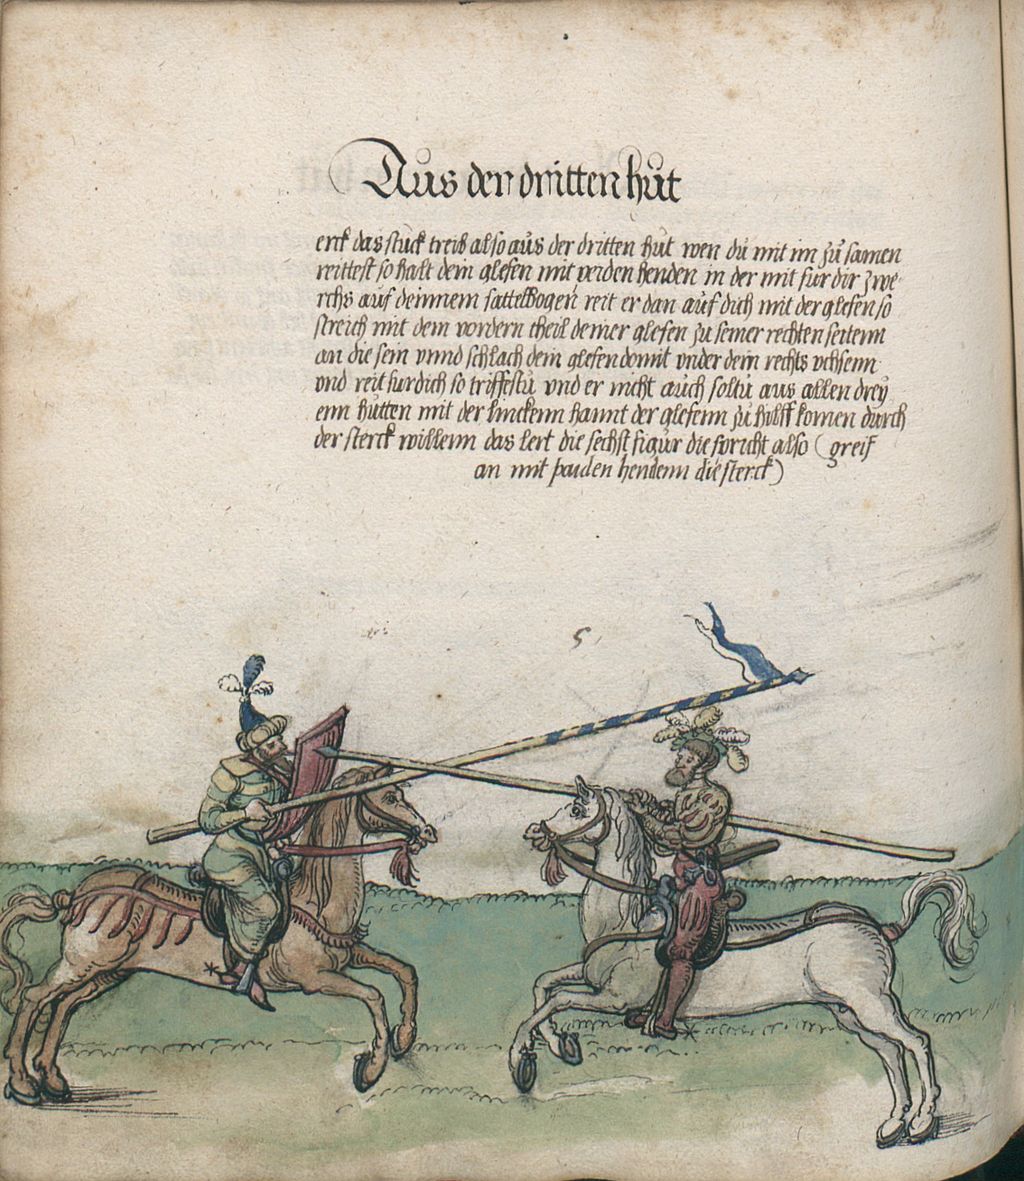 Aus der dritten hut
erck das stuck treib also aus der dritten hut wen du mit im zu samen
reittest so halt dein glefen mit peden henden in der mit fur dir zwe-
rchs auf deinnem sattelbogen reit er dan auf dich mit der glefen so
streich mit dem vordern theil deiner glefen zu seiner rechten seitenn
an die sein vnnd schlach dein glefen domit vnder dein rechts vchsenn
vnd reit furdich so triffestu vnd er nicht auch soltu aus allen drey
enn hutten mit der linckenn hannt der glefenn zu hulff komen durch
der sterck willenn das lert die sechst figur die spricht also (greif
an mit paiden hendenn die sterck)
5